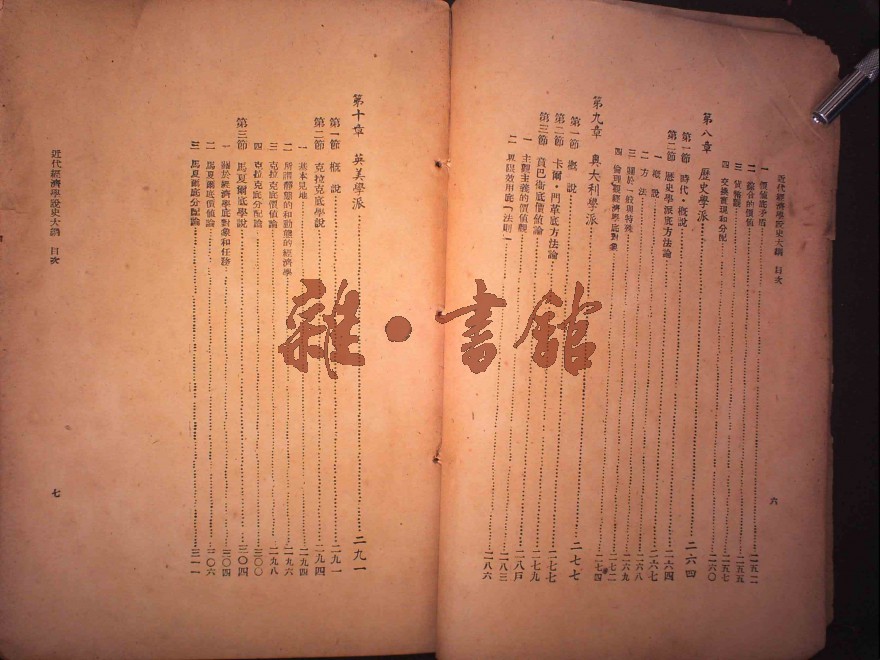 近代經濟學說史大綱 目次
一 價值底矛盾 二五二
二 綜合的價值 二五五
三 貨幣觀 二五七
四 交換實現和分配 二六〇
第八章 歷史學派 二六四
第一節 時代・概說 二六四
第二節 歷史學派底方法論 二六七
一 概說 二六七
二 方法 二六八
三 關於一般與特殊 二六九
四 倫理觀經濟學底對象 二七四
第九章 奧大利學派 二七七
第一節 概說 二七七
第二節 卡爾・門革底方法論 二七九
第三節 賁巴衛底價值論 二八〇
一 主觀主義的價值觀 二八三
二 界限效用底「法則」 二八六
六
第十章 英美學派 二九一
第一節 概說 二九一
第二節 克拉克底學說 二九四
一 基本見地 二九四
二 所謂靜態的和動態的經濟學 二九六
三 克拉克底價值論 二九八
四 克拉克底分配論 三〇〇
第三節 馬夏爾底學說 三〇四
一 關於經濟學底對象和任務 三〇四
二 馬夏爾底價值論 三〇六
三 馬夏爾底分配論 三一一
近代經濟學說史大綱 目次
七
雜・書館